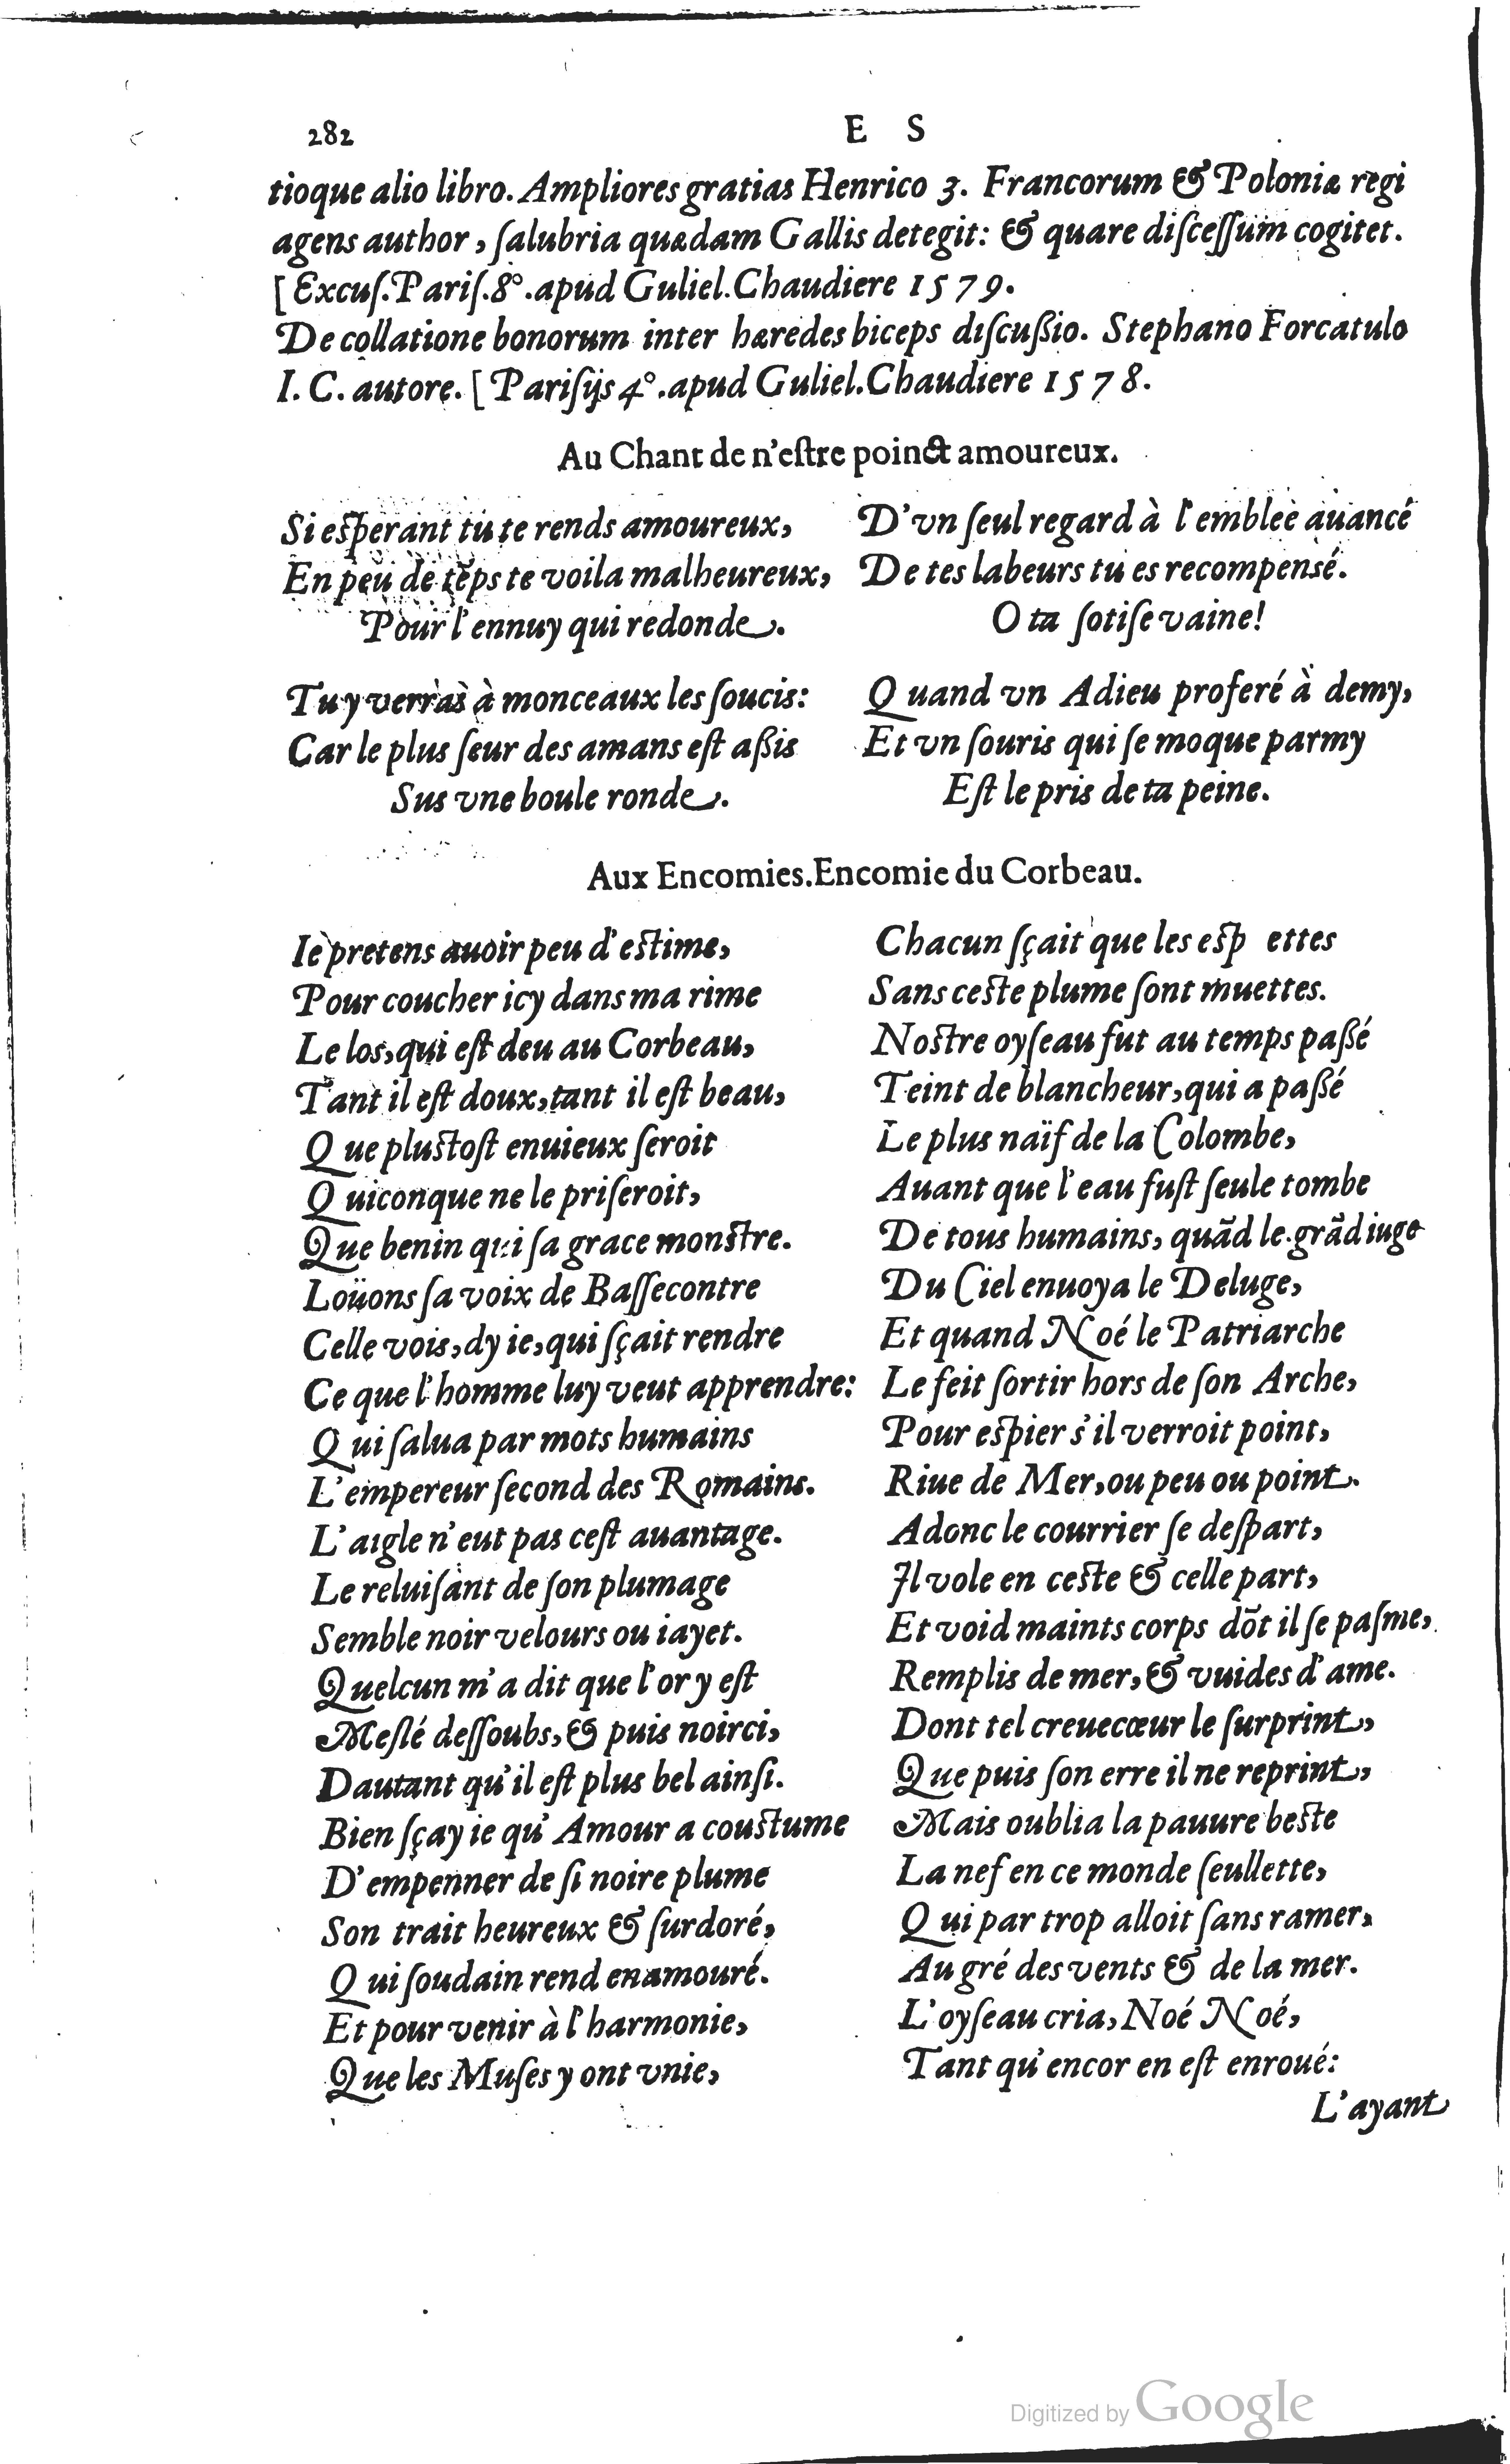 282
E S
tioque alio libro. Ampliores gratias Henrico 3. Francorum & Poloniæ regi
agens author, ſalubria quædam Gallis detegit: & quare diſceſſum cogitet.
[Excuſ. Pariſ. 8°. apud Guliel. Chaudiere 1579.
De collatione bonorum inter hæredes biceps diſcußio. Stephano Forcatulo
I. C. autore. [Pariſijs 4°. apud Guliel. Chaudiere 1578.
Au Chant de n'eſtre poinct amoureux.
Si eſperant tu te rends amoureux,
En peu de tẽps te voila malheureux,
Pour l'ennuy qui redonde.
Tu y verras à monceaux les ſoucis:
Car le plus ſeur des amans eſt aßis
Sus vne boule ronde.
D'vn ſeul regard à l'emblee auancé
De tes labeurs tu es recompensé.
O ta ſotiſe vaine!
Quand vn Adieu proferé à demy,
Et vn ſouris qui ſe moque parmy
Eſt le pris de ta peine.
Aux Encomies. Encomie du Corbeau.
Ie pretens auoir peu d'eſtime,
Pour coucher icy dans ma rime
Le los, qui eſt deu au Corbeau,
Tant il eſt doux, tant il eſt beau,
Que pluſtoſt enuieux ſeroit
Quiconque ne le priſeroit,
Que benin qui ſa grace monſtre.
Loüons ſa voix de Baſſecontre
Celle vois, dy ie, qui ſçait rendre
Ce que l'homme luy veut apprendre:
Qui ſalua par mots humains
L'empereur ſecond des Romains.
L'aigle n'eut pas ceſt auantage.
Le reluiſant de ſon plumage
Semble noir velours ou iayet.
Quelcun m'a dit que l'or y eſt
Meſlé deſſoubs, & puis noirci,
Dautant qu'il eſt plus bel ainſi.
Bien ſçay ie qu'Amour a couſtume
D'empenner de ſi noire plume
Son trait heureux & ſurdoré,
Qui ſoudain rend enamouré.
Et pour venir à l'harmonie,
Que les Muſes y ont vnie,
Chacun ſçait que les eſp ettes
Sans ceſte plume ſont muettes.
Noſtre oyſeau fut au temps paßé
Teint de blancheur, qui a paßé
Le plus naïf de la Colombe,
Auant que l'eau fuſt ſeule tombe
De tous humains, quãd le grãd iuge
Du Ciel enuoya le Deluge,
Et quand Noé le Patriarche
Le feit ſortir hors de ſon Arche,
Pour eſpier s'il verroit point,
Riue de Mer, ou peu ou point.
Adonc le courrier ſe deſpart,
Il vole en ceſte & celle part,
Et void maints corps dõt il ſe paſme,
Remplis de mer, & vuides d'ame.
Dont tel creuecœur le ſurprint,
Que puis ſon erre il ne reprint,
Mais oublia la pauure beſte
La nef en ce monde ſeullette,
Qui par trop alloit ſans ramer,
Au gré des vents & de la mer.
L'oyſeau cria, Noé Noé,
Tant qu'encor en eſt enroué:
L'ayant
Digitized by Google